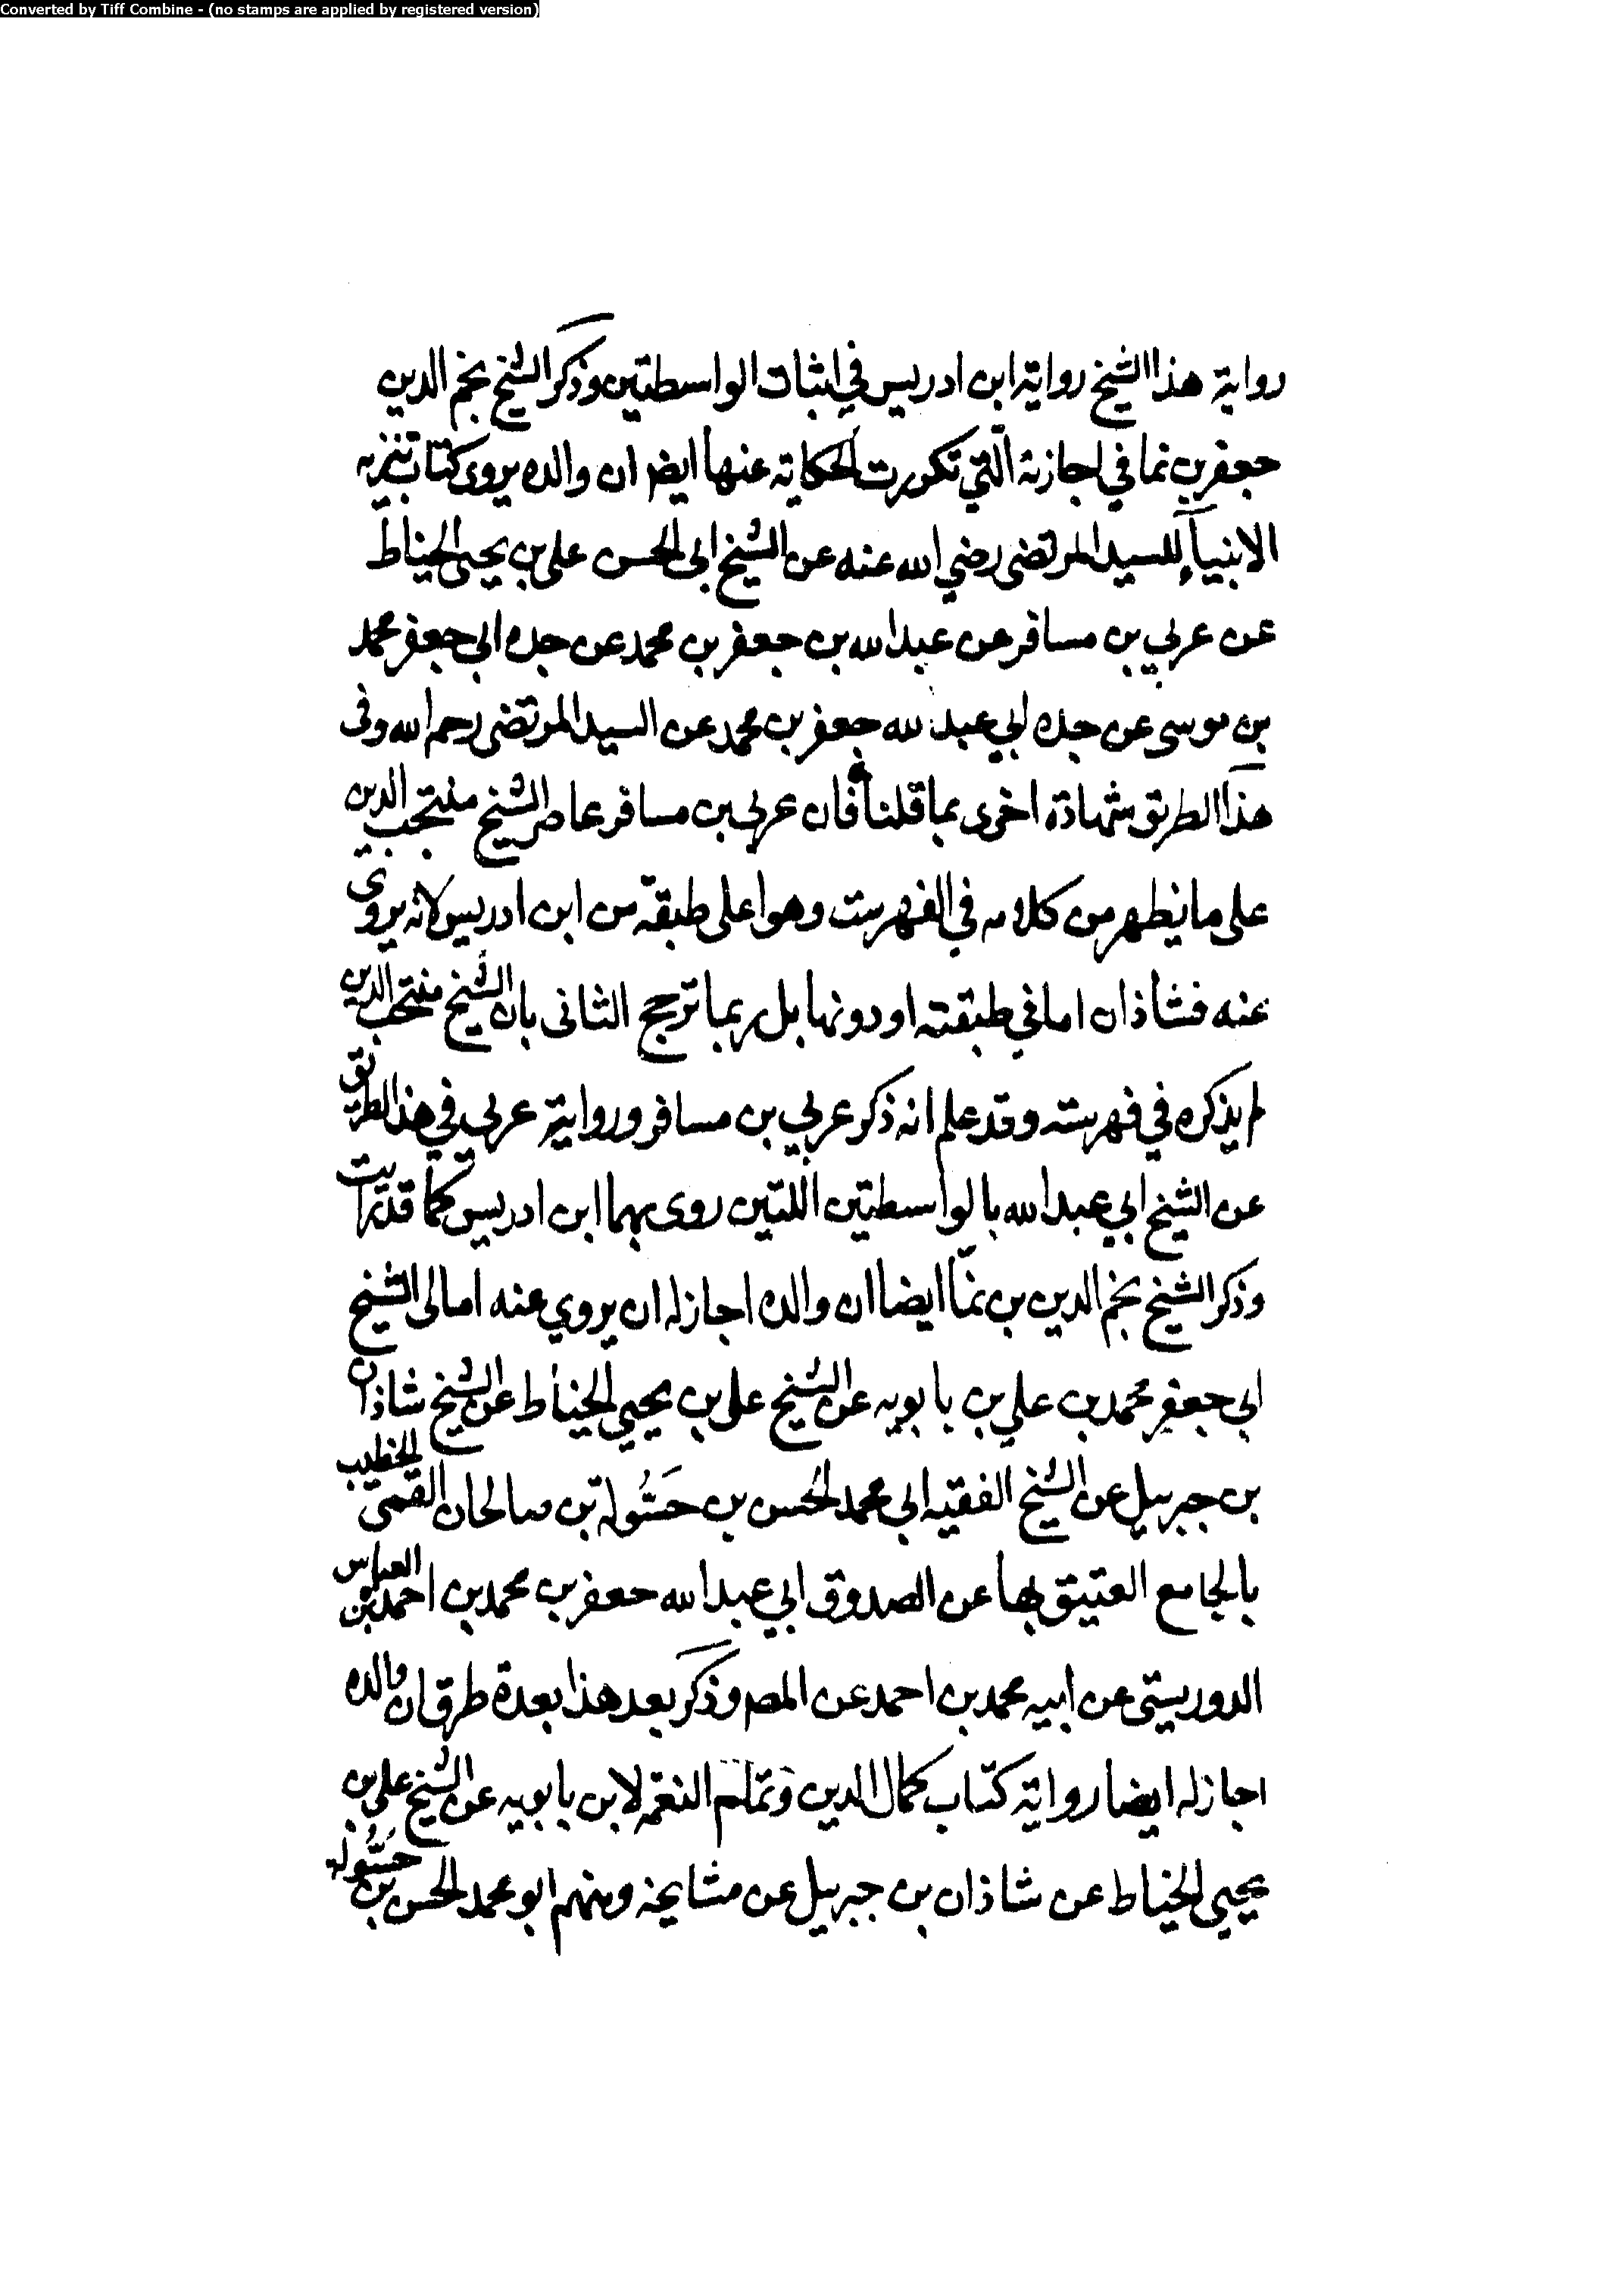 Converted by Tiff Combine - (no stamps are applied by registered version)
رواية هذا الشيخ رواية ابن ادريس في اثبات الواسطتين وذكر الشيخ نجم الدين
جعفر بن نما في اجازته التي تكررت الحكاية عنها ايضا ان والده يروى كتاب تنزيه
الانبياء للسيد المرتضى رضي الله عنه عن الشيخ ابى الحسن على بن يحيى الحناط
عن عربي بن مسافر عن عبد الله بن جعفر بن محمد عن جده ابي جعفر محمد
بن موسى عن جده ابي عبد الله جعفر بن محمد عن السيد المرتضى رحمه الله وفى
هذا الطريق شهادة اخرى بما قلناه فان عربي بن مسافر عاصر الشيخ منتجب الدين
على ما يظهر من كلامه في الفهرست وهو اعلى طبقة من ابن ادريس لانه يروى
عنه فشاذان اما في طبقته او دونها بل ربما ترجح الثانى بان الشيخ منتجب الدين
لم يذكره في فهرسته وقد علم انه ذكر عربي بن مسافر ورواية عربي في هذا الطريق
عن الشيخ ابي عبد الله بالواسطتين اللتين روى بهما ابن ادريس كما قد رايت
وذكر الشيخ نجم الدين بن نمّا ايضا ان والده اجاز له ان يروي عنه امالى الشيخ
ابي جعفر محمد بن علي بن بابويه عن الشيخ على بن يحيي الخياط عن الشيخ شاذان
بن جبرييل عن الشيخ الفقيه ابي محمد الحسن بن حَسُّولة بن صالحان القمى الخطيب
بالجامع العتيق بها عن الصدوق ابي عبد الله جعفر بن محمد بن احمد بن العباس
الدوريستى عن ابيه محمد بن احمد عن المصـ وذكر بعد هذا بعدة طرق ان والده
اجاز له ايضا رواية كتاب كمال الدين وتمام النعمة لابن بابويه عن الشيخ على بن
يحيي الخياط عن شاذان بن جبرييل عن مشايخه ومنهم ابو محمد الحسن بن حَسُّولة